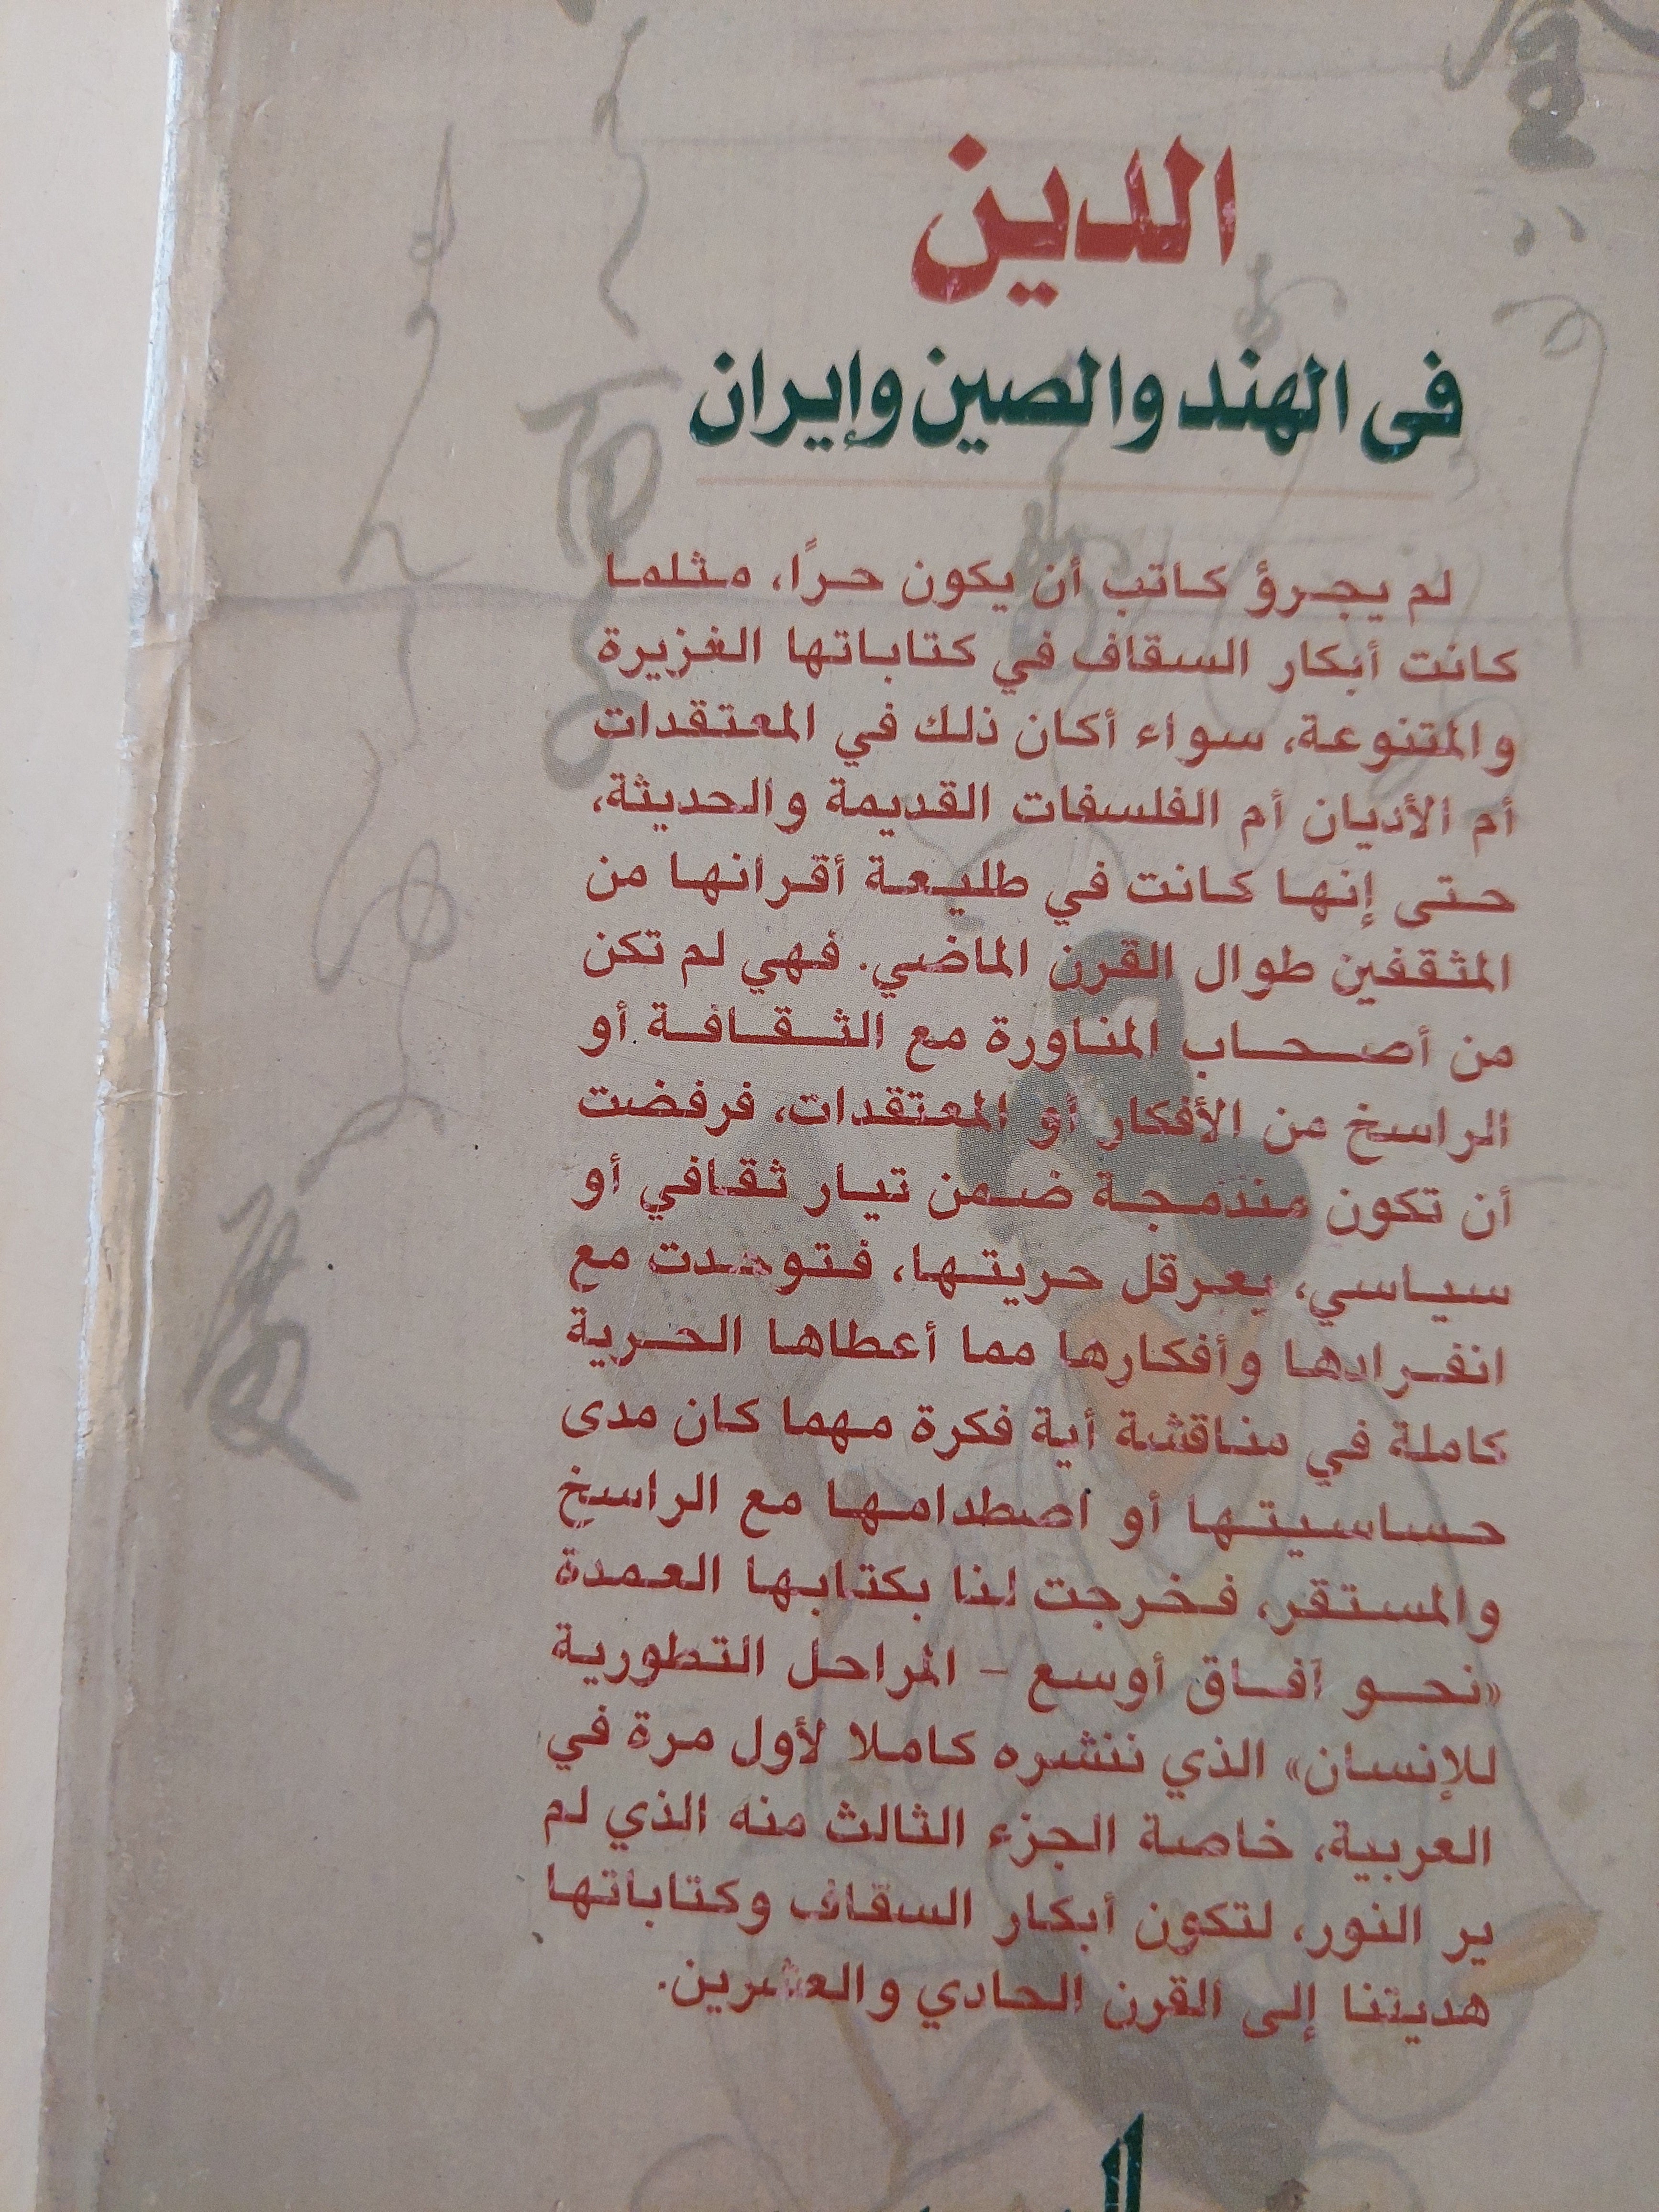 الدين
فى الهند والصين وإيران
لم يجرؤ كاتب أن يكون حرًا، مثلما
كانت أبكار السقاف في كتاباتها الغزيرة
والمتنوعة، سواء أكان ذلك في المعتقدات
أم الأديان أم الفلسفات القديمة والحديثة،
حتى إنها كانت في طليعة أقرانها من
المثقفين طوال القرن الماضي. فهي لم تكن
من أصحاب المناورة مع الثقافة أو
الراسخ من الأفكار أو المعتقدات، فرفضت
أن تكون مندمجة ضمن تيار ثقافي أو
سياسي، يعرقل حريتها، فتوحدت مع
انفرادها وأفكارها مما أعطاها الحرية
كاملة في مناقشة أية فكرة مهما كان مدى
حساسيتها أو اصطدامها مع الراسخ
والمستقر، فخرجت لنا بكتابها العمدة
«نحو آفاق أوسع - المراحل التطورية
للإنسان» الذي ننشره كاملا لأول مرة في
العربية، خاصة الجزء الثالث منه الذي لم
ير النور، لتكون أبكار السقاف وكتاباتها
هديتنا إلى القرن الحادي والعشرين.